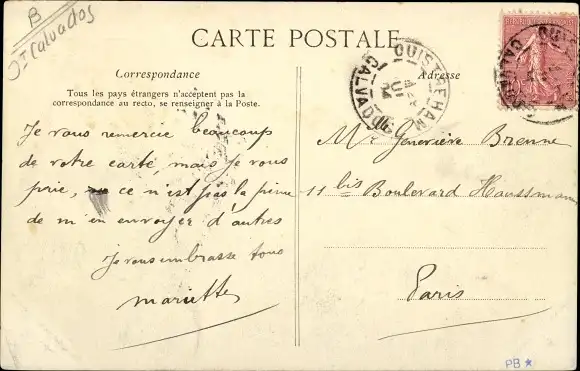 B
Dt Calvados
CARTE POSTALE
Correspondance
Tous les pays étrangers n'acceptent pas la
correspondance au recto, se renseigner à la Poste.
Je vous remercie beaucoup
de votre carté, mais je vous
prie, ce n'est pas la peine
de m'en envoyer d'autres
Je vous embrasse tous
Mariette
Adresse
OUISTREHAM
CALVADOS
Mlle Geneviève Brenne
11 bis Boulevard Haussmann
Paris
PB